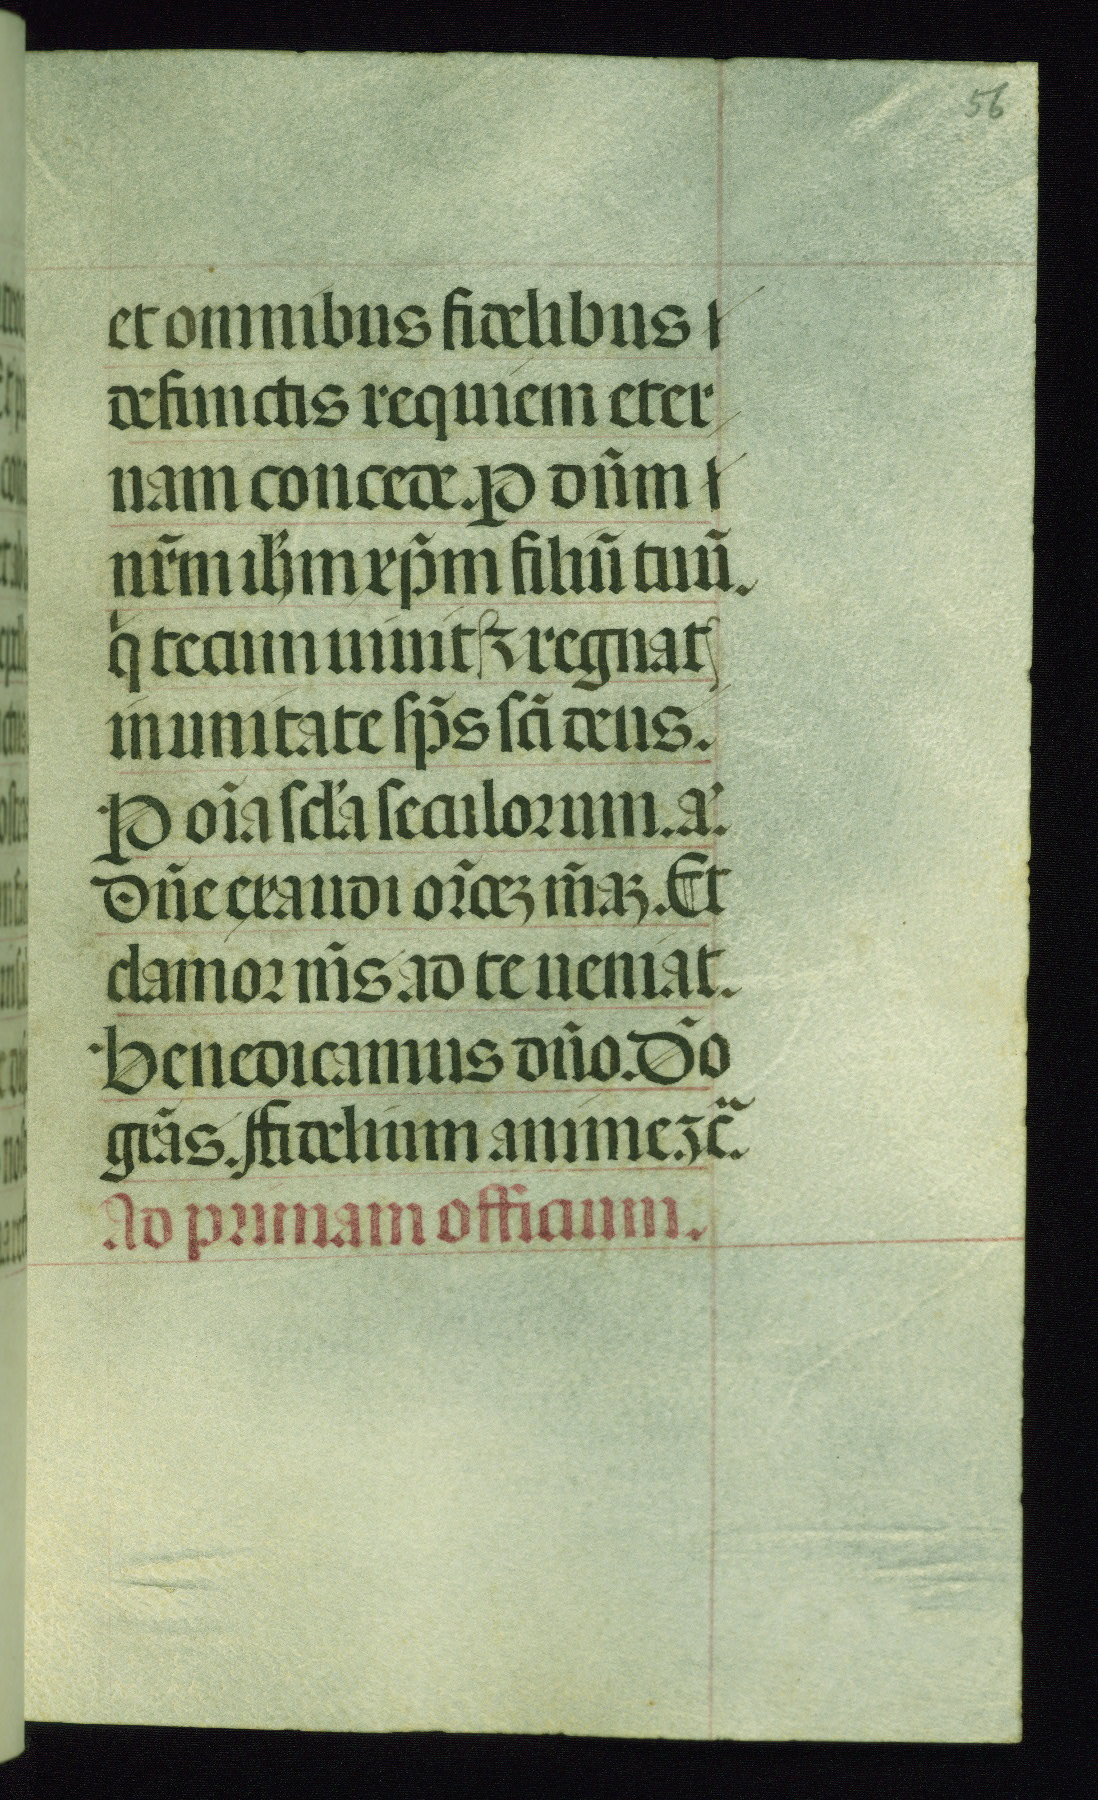 56
et omnibus fidelibus
defunctis requiem eter
nam concede. P dñm
nr̃m ihm̃ xp̃m filiũ tuũ.
q tecum uiuit ⁊ regnat
in unitate sp̃s sc̃i deus.
P oĩa scl̃a seculorum. a.
Dñe exaudi or̃oeꝫ m̃aꝫ. Et
clamor m̃s ad te ueniat.
Benedicamus dño. Dõ
gr̃as. ffidelium anime ⁊c̃.
Ad primam officium.